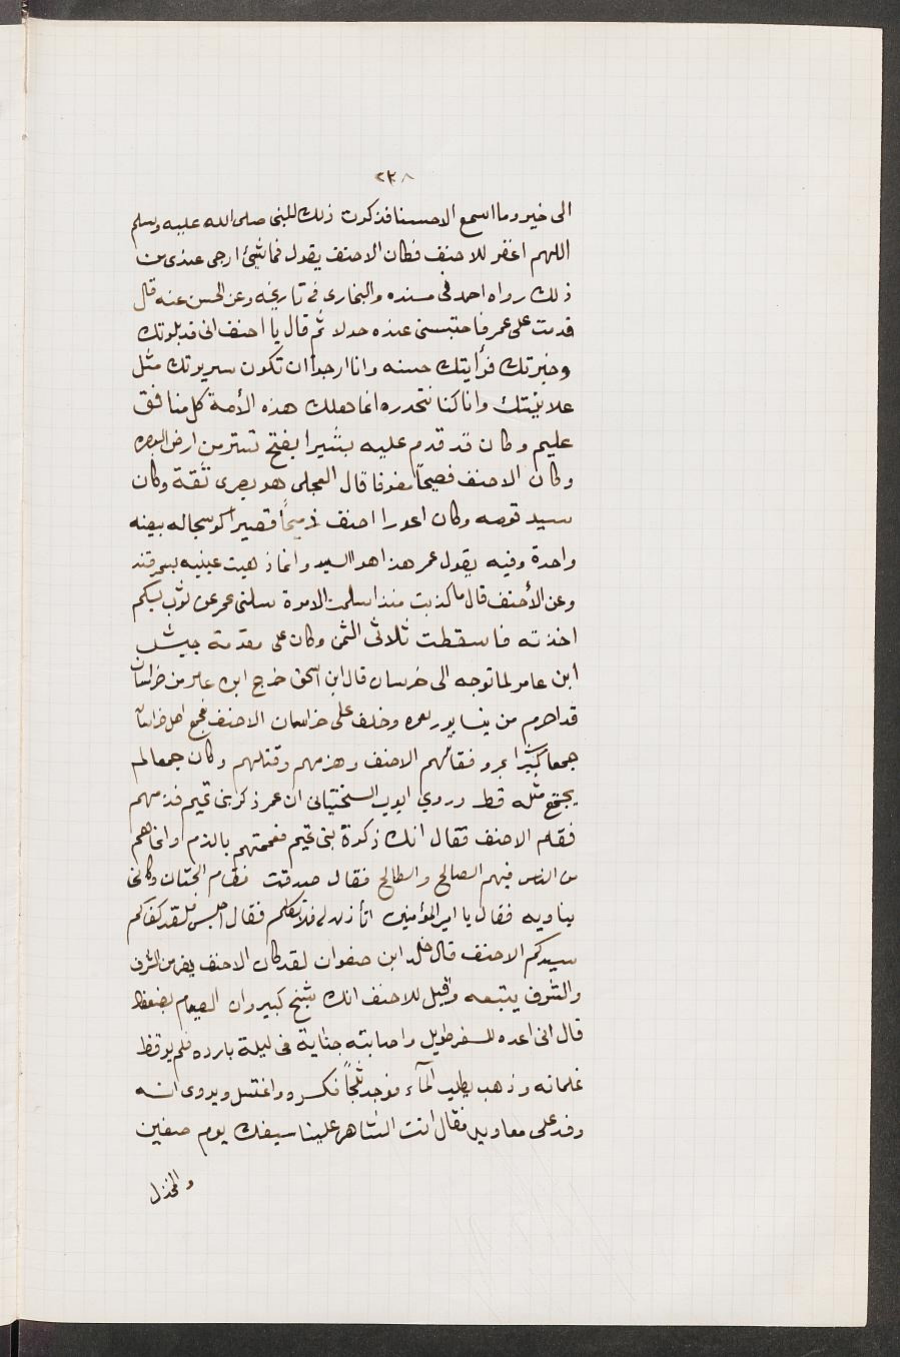 ٢٣٨
الى خير وما اسمع الا حسنا فذكرت ذلك للنبى صلى الله عليه وسلم
اللهم اغفر للاحنف فكان الاحنف يقول فما شيئ ارجى عندى من
ذلك رواه احمد فى مسنده والبخارى فى تاريخه وعن الحسن عنه قال
قدمت على عمر فاحتبسنى عنده حولا ثم قال يا احنف انى قد بلوتك
وخبرتك فرأيتك حسنه وانا ارجوا ان تكون سريرتك مثل
علانيتك وانا كنا نتحدره انما هلك هذه الأمة كل منافق
عليم وكان قد قدم عليه بشيرا بفتح تستر من ارض البصره
وكان الاحنف فصيحا مفوها قال العجلى هو بصرى ثقة وكان
سيد قومه وكان اعورا احنف ذميما قصيرا كوسجا له بيضه
واحدة وفيه يقول عمر هذا هو السيد وانما ذهبت عينيه بسمرقند
وعن الأحنف قال ما كذبت منذ اسلمت الا مرة سلنى عمر عن ثوب بكم
اخذته فاسقطت ثلاثى الثمن وكان على مقدمة جيش
ابن عامر لما توجه الى خرسان قال ابن اسحق خرج ابن عامر من خراسان
قد احرم من نيسابور بعمره وخلف على خراسان الاحنف فجمع اهل خراسان
جمعا كبيرا بمرو فقاتلهم الاحنف وهزمهم وقتلهم وكان جمعا لم
يجتمع مثله قط وروي ايوب السختيانى ان عمر ذكر بنى تميم فذمهم
فقام الاحنف فقال انك ذكرة بنى تميم فعممتهم بالذم وانما هم
من الناس فيهم الصالح والطالح فقال صدقت فقام الحتات وكان
يناويه فقال يا امير المؤمنين اتأذن لى فلاتكلم فقال اجلس فلقد كفاكم
سيدكم الاحنف قال خلد ابن صفوان لقد كان الاحنف يفر من الشرف
والشرف يتبعه وقيل للاحنف انك شيخ كبير وان الصيام يضعفك
قال انى اعده لسفر طويل واصابته جنابة فى ليلة بارده فلم يوقظ
غلمانه وذهب يطلب المآء فوجد ثلجا فكسره واغتسل ويروى انه
وفد على معاوية فقال انت الشاهر علينا سيفك يوم صفين
والمخذل